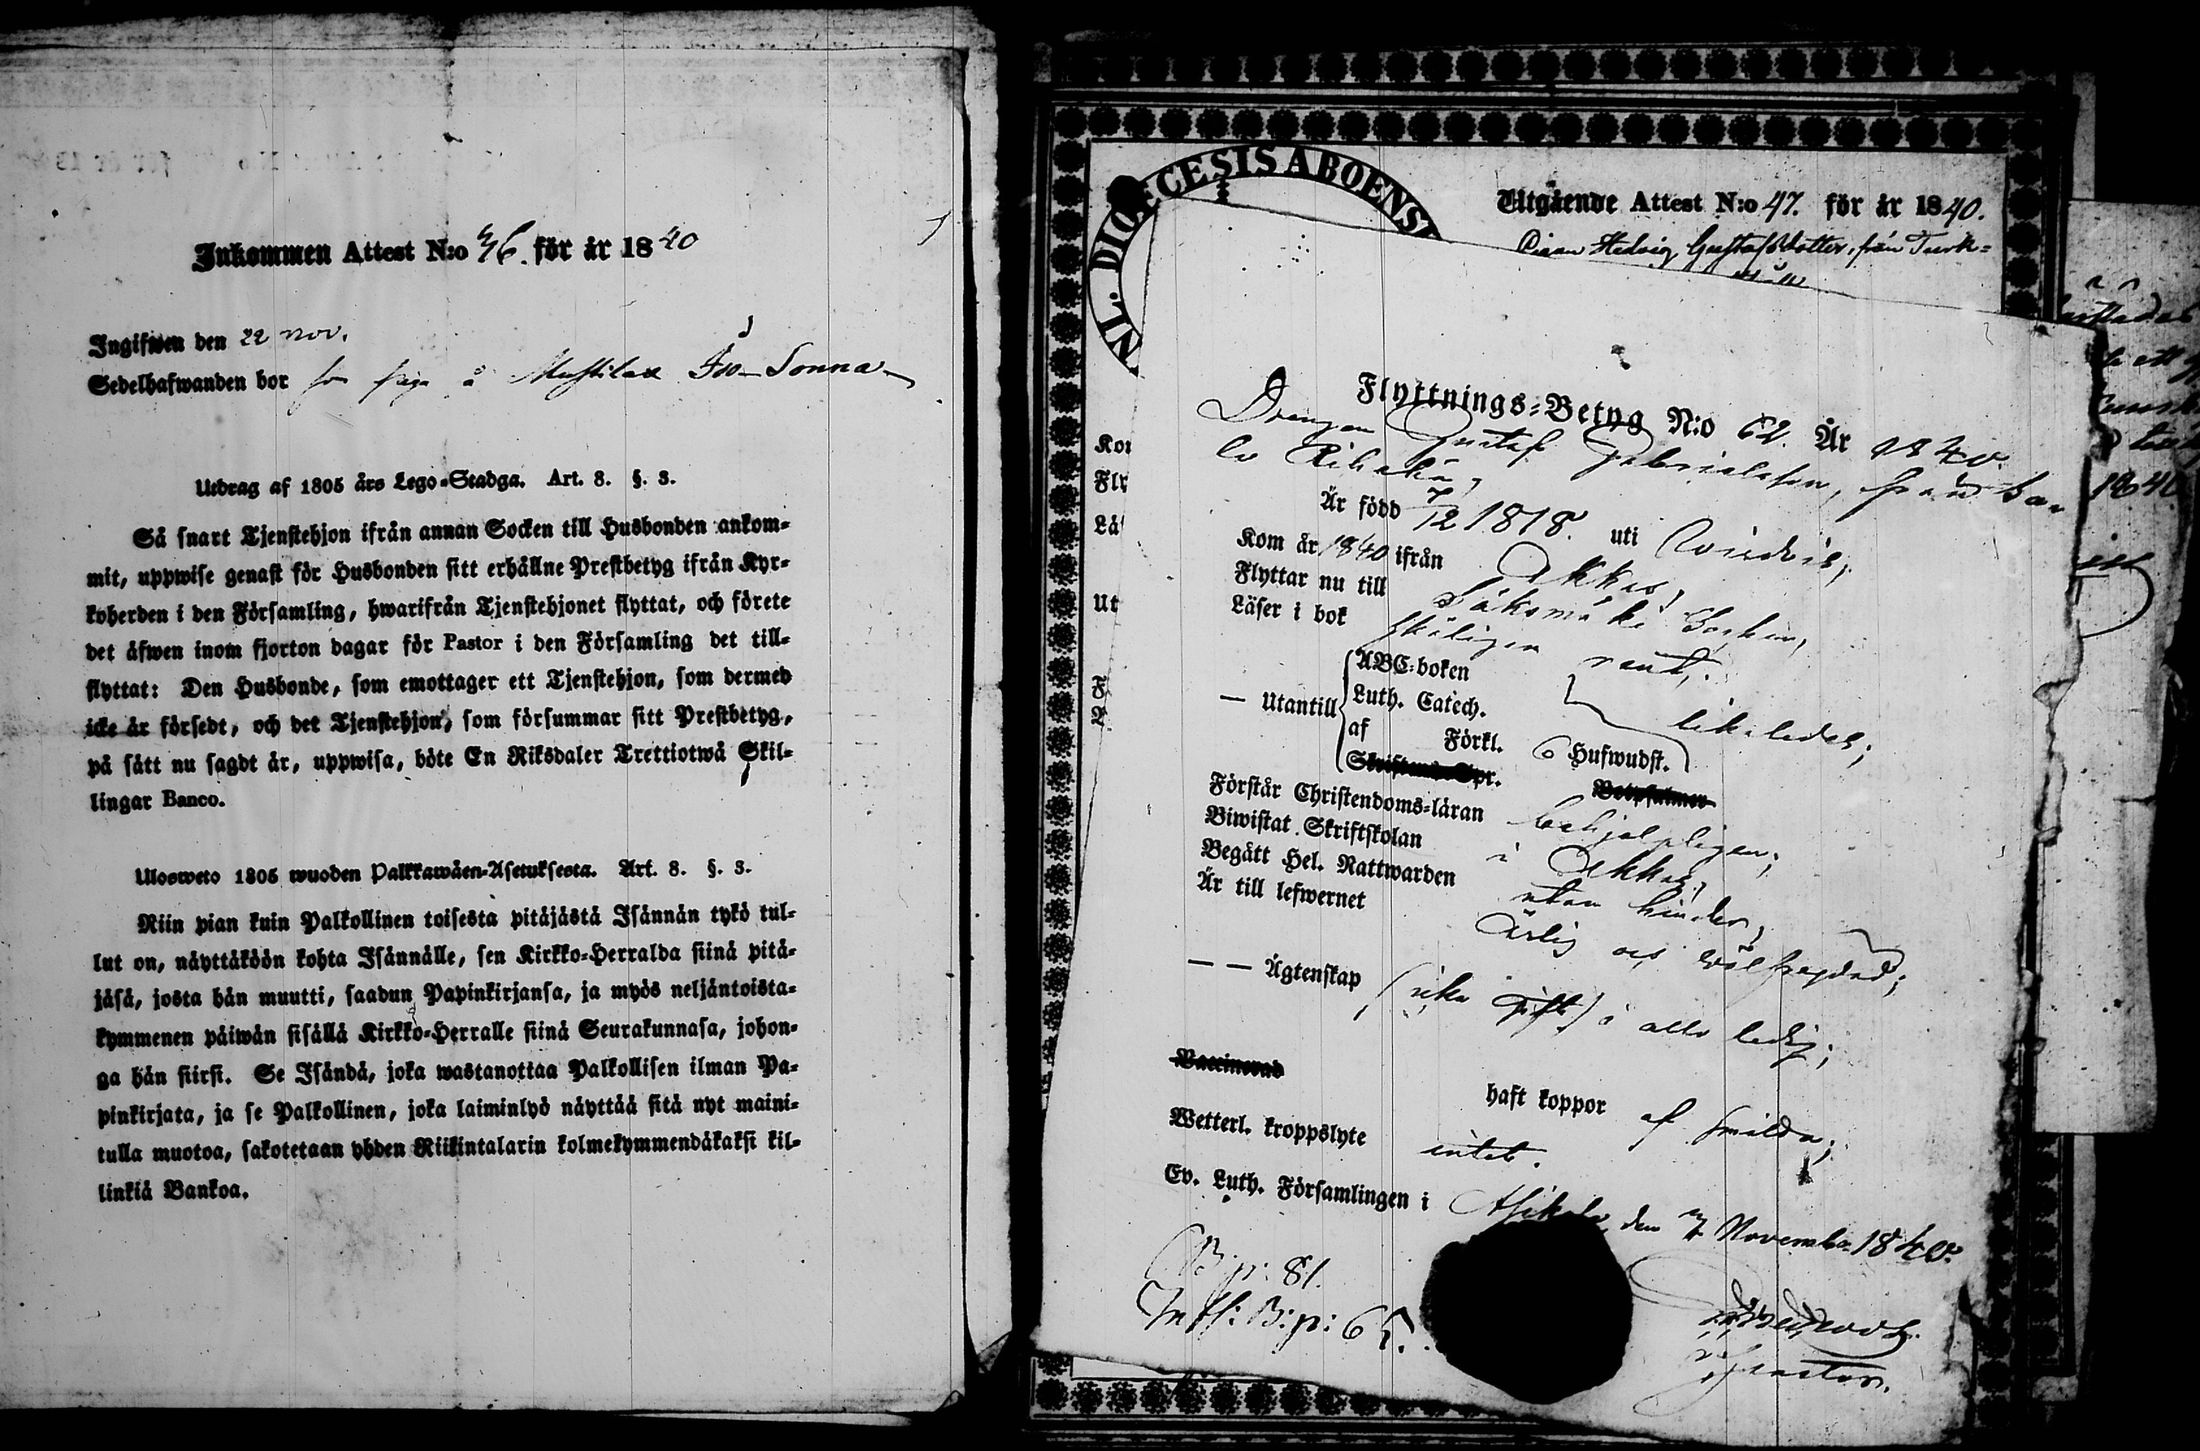 Inkommen Attest N:o 46. för år 1840
Ingifwen den 22 nov.
Sedelhafwanden bor
Utdrag af 1805 års Lego-Stadga. Art. 8. §. 3.
Så snart Tjenstehjon ifrån annan Socken till Husbonden ankom-
mit, uppwise genast för Husbonden sitt erhållne Prestbetyg ifrån Kyr-
koherden i den Församling, hwarifrån Tjenstehjonet flyttat, och förete
det äfwen inom fjorton dagar för Pastor i den Församling det till-
flyttat: Den Husbonde, som emottager ett Tjenstehjon, som dermed
icke är försedt, och det Tjenstehjon, som försummar sitt Prestbetyg,
på sätt nu sagdt är, uppwisa, böte En Riksdaler Trettiotwå Skil-
lingar Banco.
Ulosweto 1805 wuoden Palkkawäen-Asetuksesta. Art. 8. §. 3.
Niin pian kuin Palkollinen toisesta pitäjästä Isännän tykö tul-
lut on, näyttäköön kohta Isännälle, sen Kirkko-Herralda siinä pitä-
jäsä, josta hän muutti, saadun Papinkirjansa, ja myös neljäntoista-
kymmenen päiwän sisällä Kirkko-Herralle siinä Seurakunnasa, johon-
ga hän siirsi. Se Isändä, joka wastanottaa Palkollisen ilman Pa-
pinkirjata, ja se Palkollinen, joka laiminlyö näyttää sitä nyt maini-
tulla muotoa, sakotetaan yhden Riikintalarin kolmekymmendäkaksi kil-
linkiä Bankoa.
DIOECESIS ABOENS
Utgående Attest N:o 47. för år 1840.
Pigan Hedvig Gustafsdotter, från Turk-
Flyttnings-Betyg N:o 62. År 1840.
Drengen Gustaf Gabrielsson, från
Är född 7/12 1818. uti
Kom år 1840 ifrån Akkas,
Flyttar nu till Sääksmäki Socken,
Läser i bok skäligen rent,
ABC-boken
— Utantill Luth. Catech. likaledes;
af Förkl. 6 Hufwudst.
Skriftenes Spr. Botpsalmer
Förstår Christendoms-läran behjelpligen;
Biwistat Skriftskolan i Akkas,
Begått Hel. Nattwarden utan hinder,
Är till lefwernet ärlig och wälfrejdad;
— — Ägtenskap (icke gift) i allo ledig;
Vaccinerad haft koppor af smilda;
Wetterl. kroppslyte intet.
Ev. Luth. Församlingen i Asikkala, den 7 November 1840.
B: p: 81.
Infl: B: p: 65.
Kor
Fly
Läs
Ut
1840